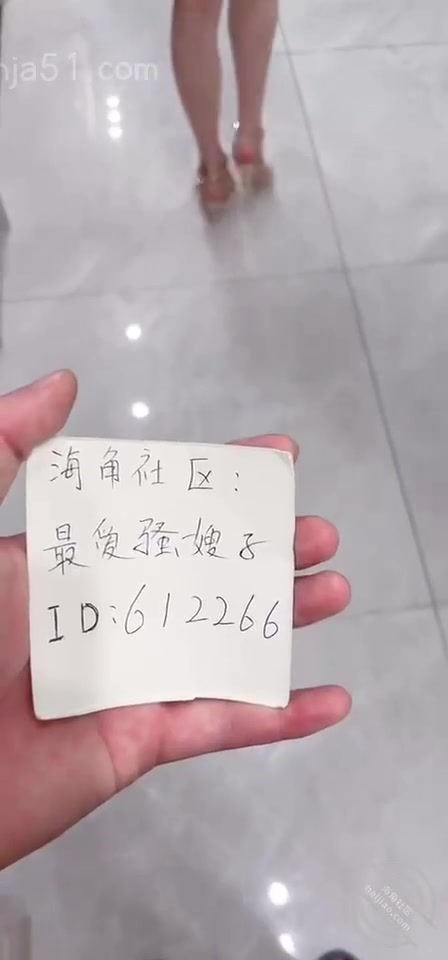 nja51.com
海角社区:
最爱骚嫂子
ID:612266
海角社区
haijiao.com